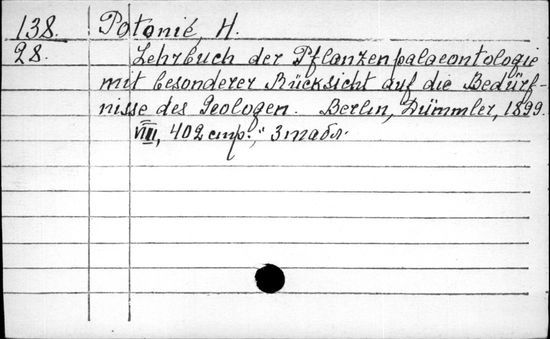 138. Potonié, H.
28. Lehrbuch der Pflanzenpalaeontologie
mit besonderer Rücksicht auf die Bedürf-
nisse des Geologen. Berlin, Dümmler, 1899.
VIII, 402 стр., 3 табл.